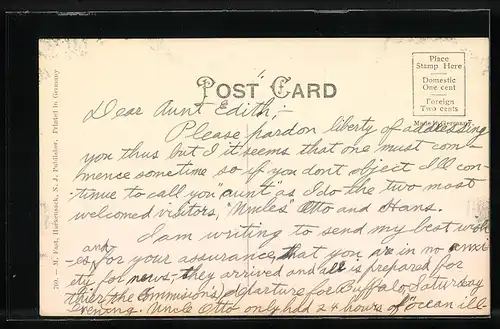 POST CARD
Place
Stamp Here
Domestic
One cent
Foreign
Two cents
Made in Germany
760. — M. Post, Hackensack, N. J. Publisher. Printed in Germany
Dear Aunt Edith;-
Please pardon liberty of addressing
you thus but I it seems that one must com-
mence sometime so if you dont object I'll con-
tinue to call you "aunt" as I do the two most
welcomed visitors, "Uncles" Otto and Hans.
I am writing to send my best wish
es, and for your assurance, that you are in no anxie
ty for news;- they arrived and all is prepared for
thier (the commission's) departure for Buffalo, Saturday
evening. Uncle Otto only had 24 hours of "ocean ill